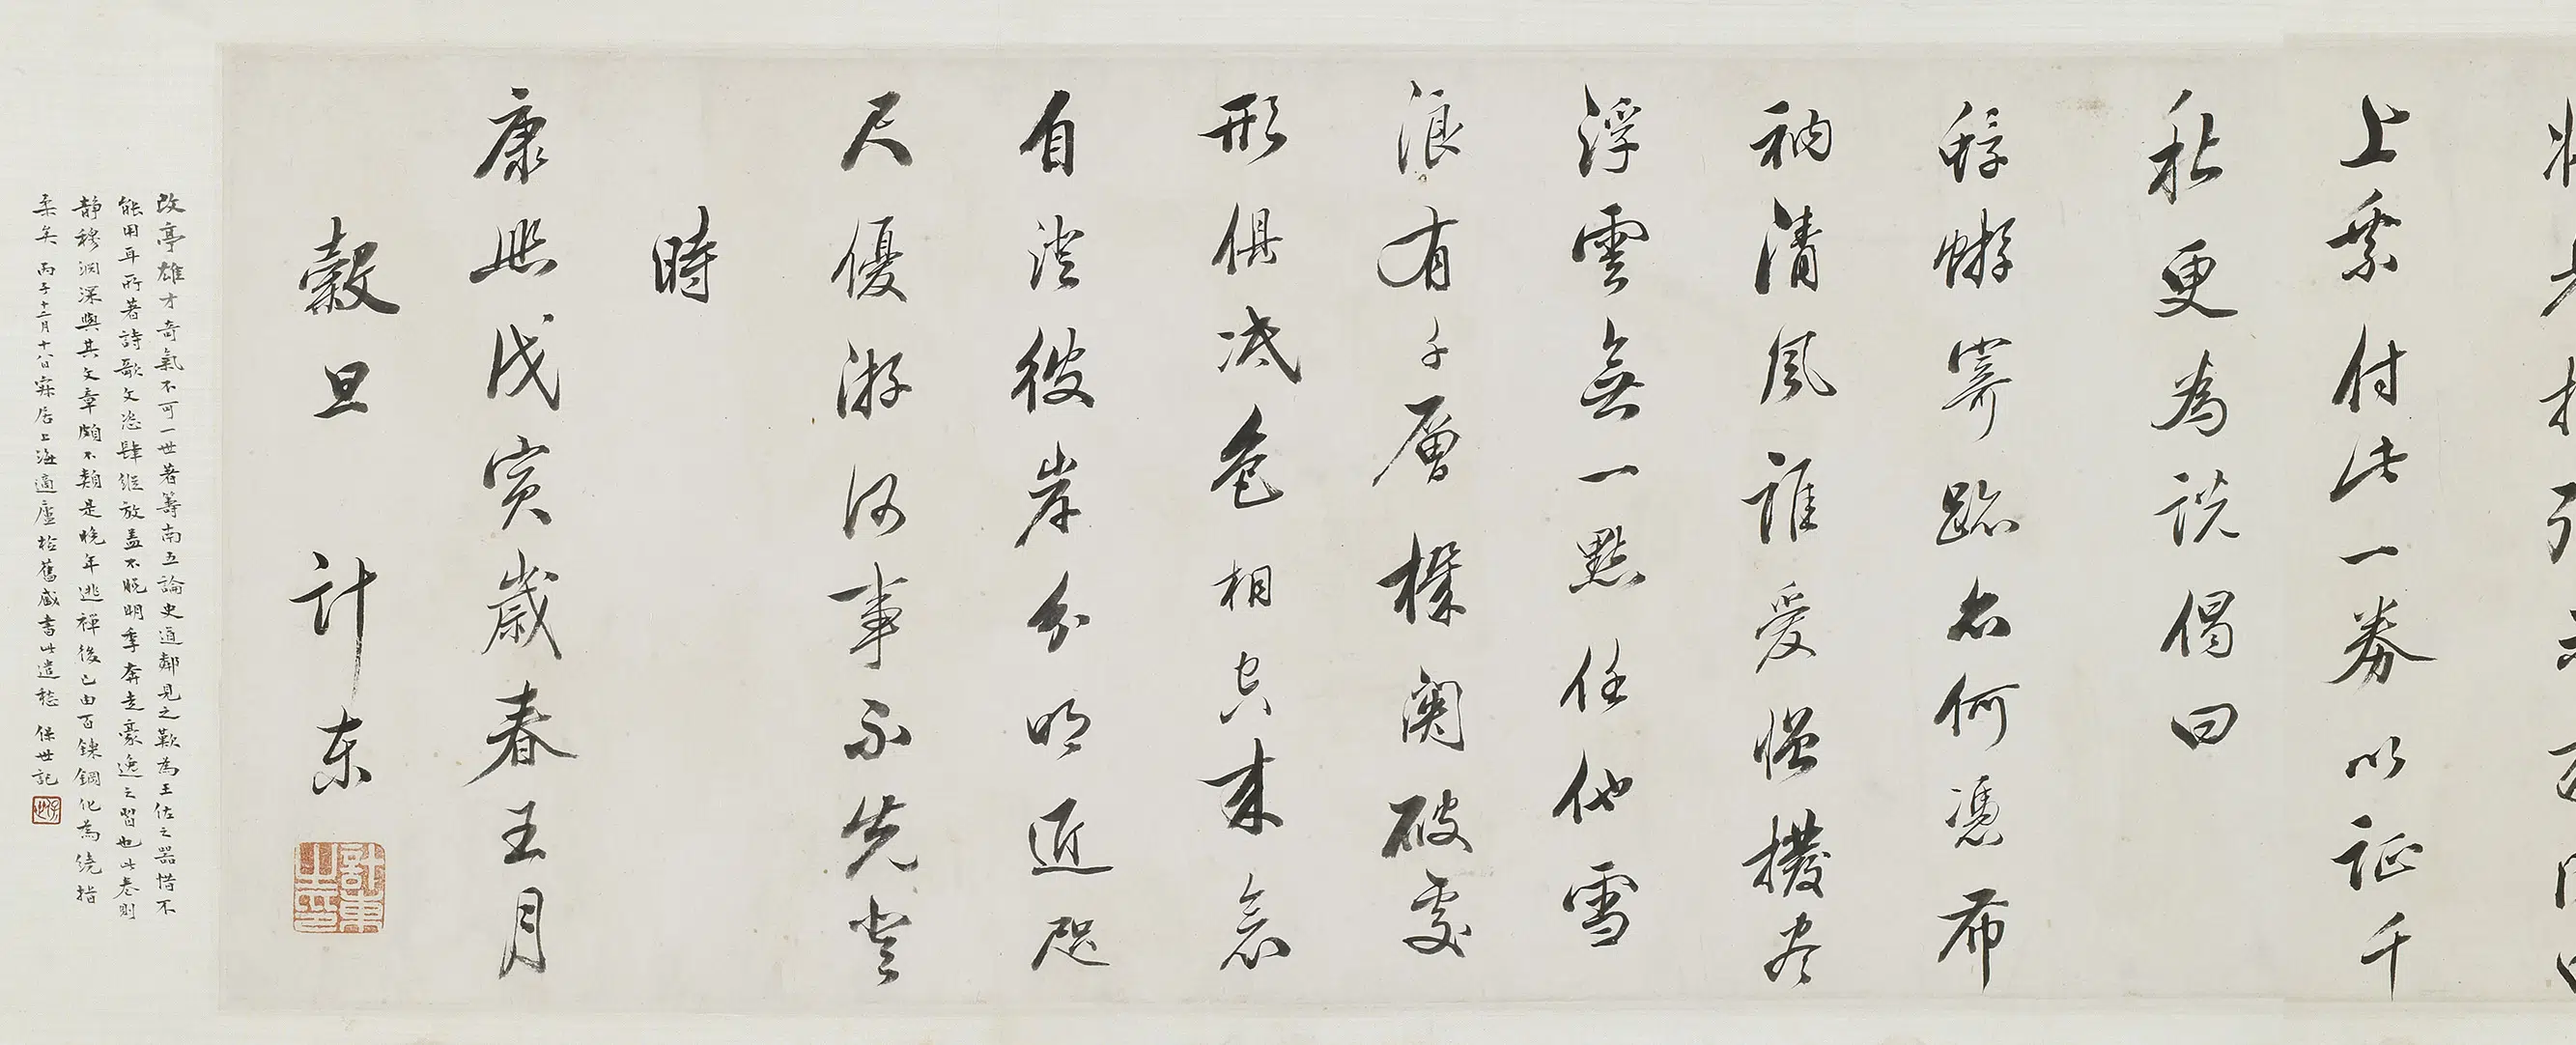 上乘付此一券以証千
秋更為説偈曰
蜉蝣寄跡名何憑布
衲清風誰愛憎撥尽
浮雲無一點任他雪
浪有千層機関破處
形俱滅色相空來意
自澄彼岸分明近咫
尺優游何事不先登
時
康熙戊寅歲春王月
穀旦 計東
計東之印
改亭雄才奇氣不可一世著籌南五論史道鄰見之歎為王佐之器惜不
能用耳所著詩歌文恣肆縱放蓋不脫明季奔走豪逸之習也此卷則
靜穆淵深與其文章頗不類是晚年逃禪後已由百鍊鋼化為繞指
柔矣 丙子十二月十八日寐居上海適廬檢舊藏書此遣愁 保世記